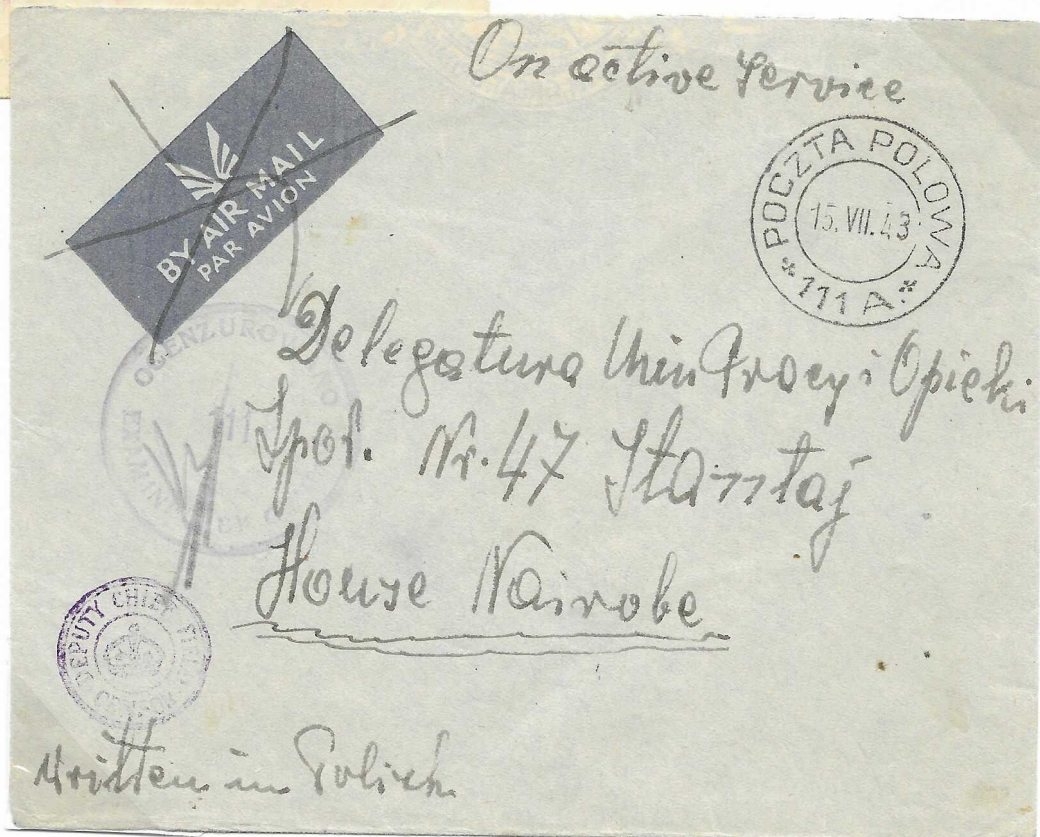 On active Service
BY AIR MAIL
PAR AVION
POCZTA POLOWA
15. VII. 43
* 111 A. *
OCENZUROWANO
111
Delegatura Min Pracy i Opieki
Społ. Nr. 47 Stantaj
House Nairobe
DEPUTY CHIEF FIELD
CENSOR
Written in Polish